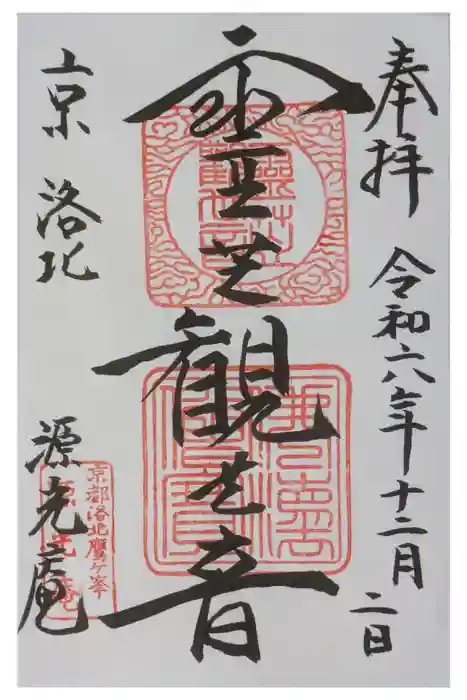 奉拝
令和六年十二月
二日
霊芝観世音
京 洛北
源光庵
京都洛北鷹ケ峯
源光庵
佛法僧寶